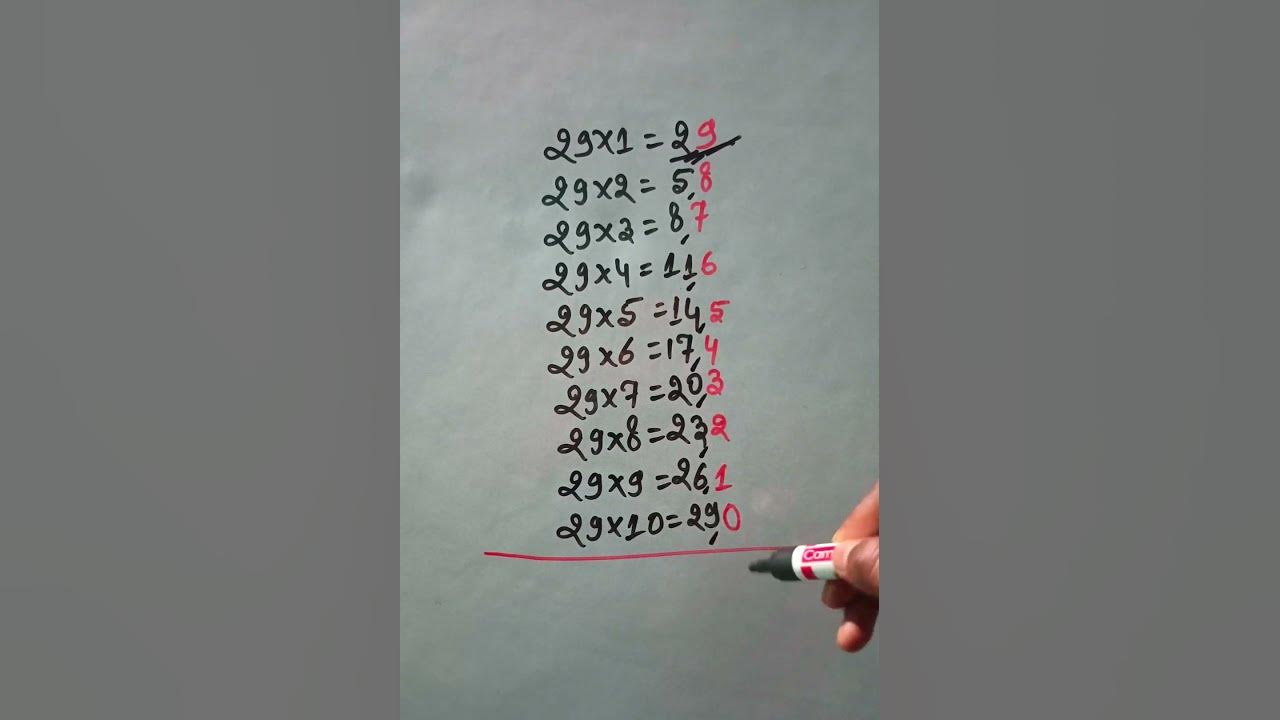 29×1=29
29×2=5,8
29×3=8,7
29×4=11,6
29×5=14,5
29×6=17,4
29×7=20,3
29×8=23,2
29×9=26,1
29×10=29,0
Cam